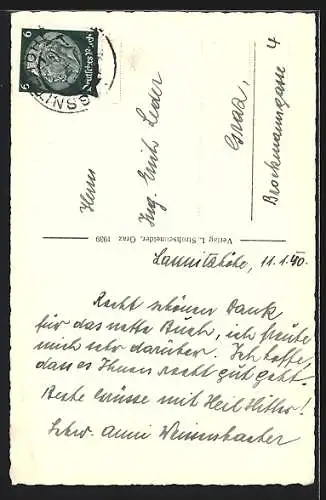 6 Deutsches Reich 6
Herrn
Ing. Erich Leder
Graz,
Brockmanngasse 4
Verlag L. Strohschneider, Graz 1939
11.1.40.
Recht schönen Dank
für das nette Buch, ich freute
mich sehr darüber. Ich hoffe,
dass es Ihnen recht gut geht.
Beste Grüsse mit Heil Hitler!
Schw. Anni